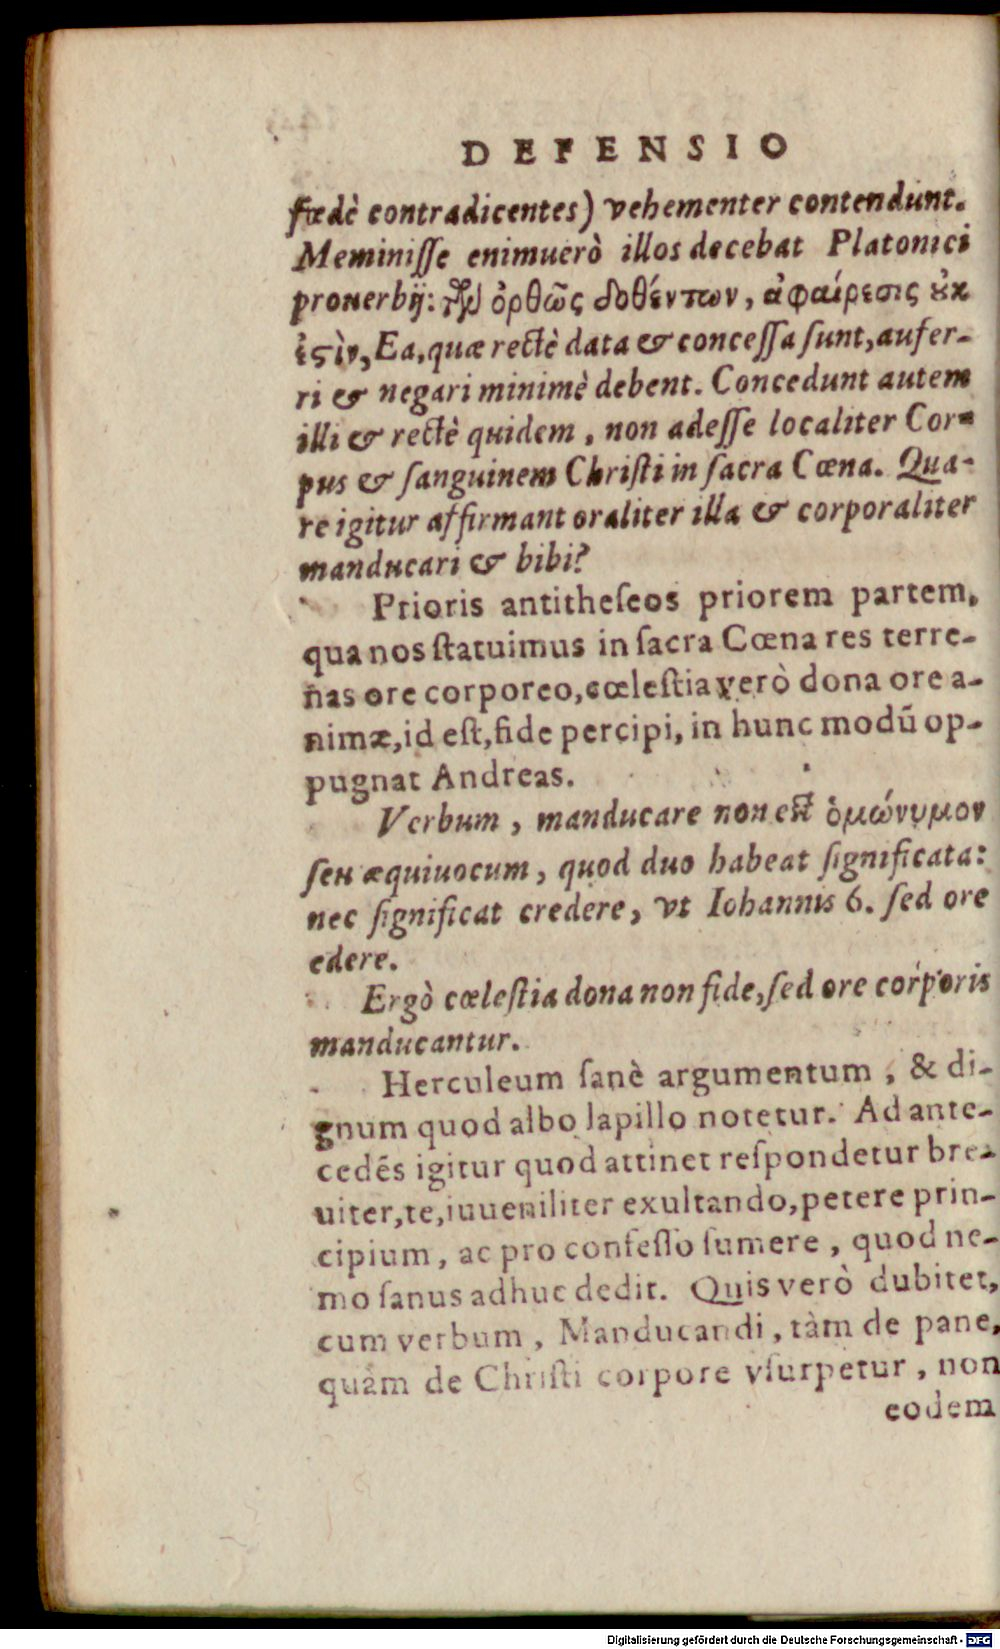 DEFENSIO
fœdè contradicentes) vehementer contendunt.
Meminiſſe enimuerò illos decebat Platonici
prouerbij: τῶν ὀρθῶς δοθέντων, ἀφαίρεσις ȣ̓κ
ἐϛὶν, Ea, quæ rectè data & conceſſa ſunt, aufer-
ri & negari minimè debent. Concedunt autem
illi & rectè quidem, non adeſſe localiter Cor-
pus & ſanguinem Chriſti in ſacra Cœna. Qua-
re igitur affirmant oraliter illa & corporaliter
manducari & bibi?
Prioris antitheſeos priorem partem,
qua nos ſtatuimus in ſacra Cœna res terre-
nas ore corporeo, cœleſtia verò dona ore a-
nimæ, id eſt, fide percipi, in hunc modū op-
pugnat Andreas.
Verbum, manducare non eſt ὁμώνυμον
ſeu æquiuocum, quod duo habeat ſignificata:
nec ſignificat credere, vt Iohannis 6. ſed ore
edere.
Ergò cœleſtia dona non fide, ſed ore corporis
manducantur.
Herculeum ſanè argumentum, & di-
gnum quod albo lapillo notetur. Ad ante-
cedēs igitur quod attinet reſpondetur bre-
uiter, te, iuueniliter exultando, petere prin-
cipium, ac pro confeſſo ſumere, quod ne-
mo ſanus adhuc dedit. Quis verò dubitet,
cum verbum, Manducandi, tàm de pane,
quàm de Chriſti corpore vſurpetur, non
eodem
Digitalisierung gefördert durch die Deutsche Forschungsgemeinschaft - DFG